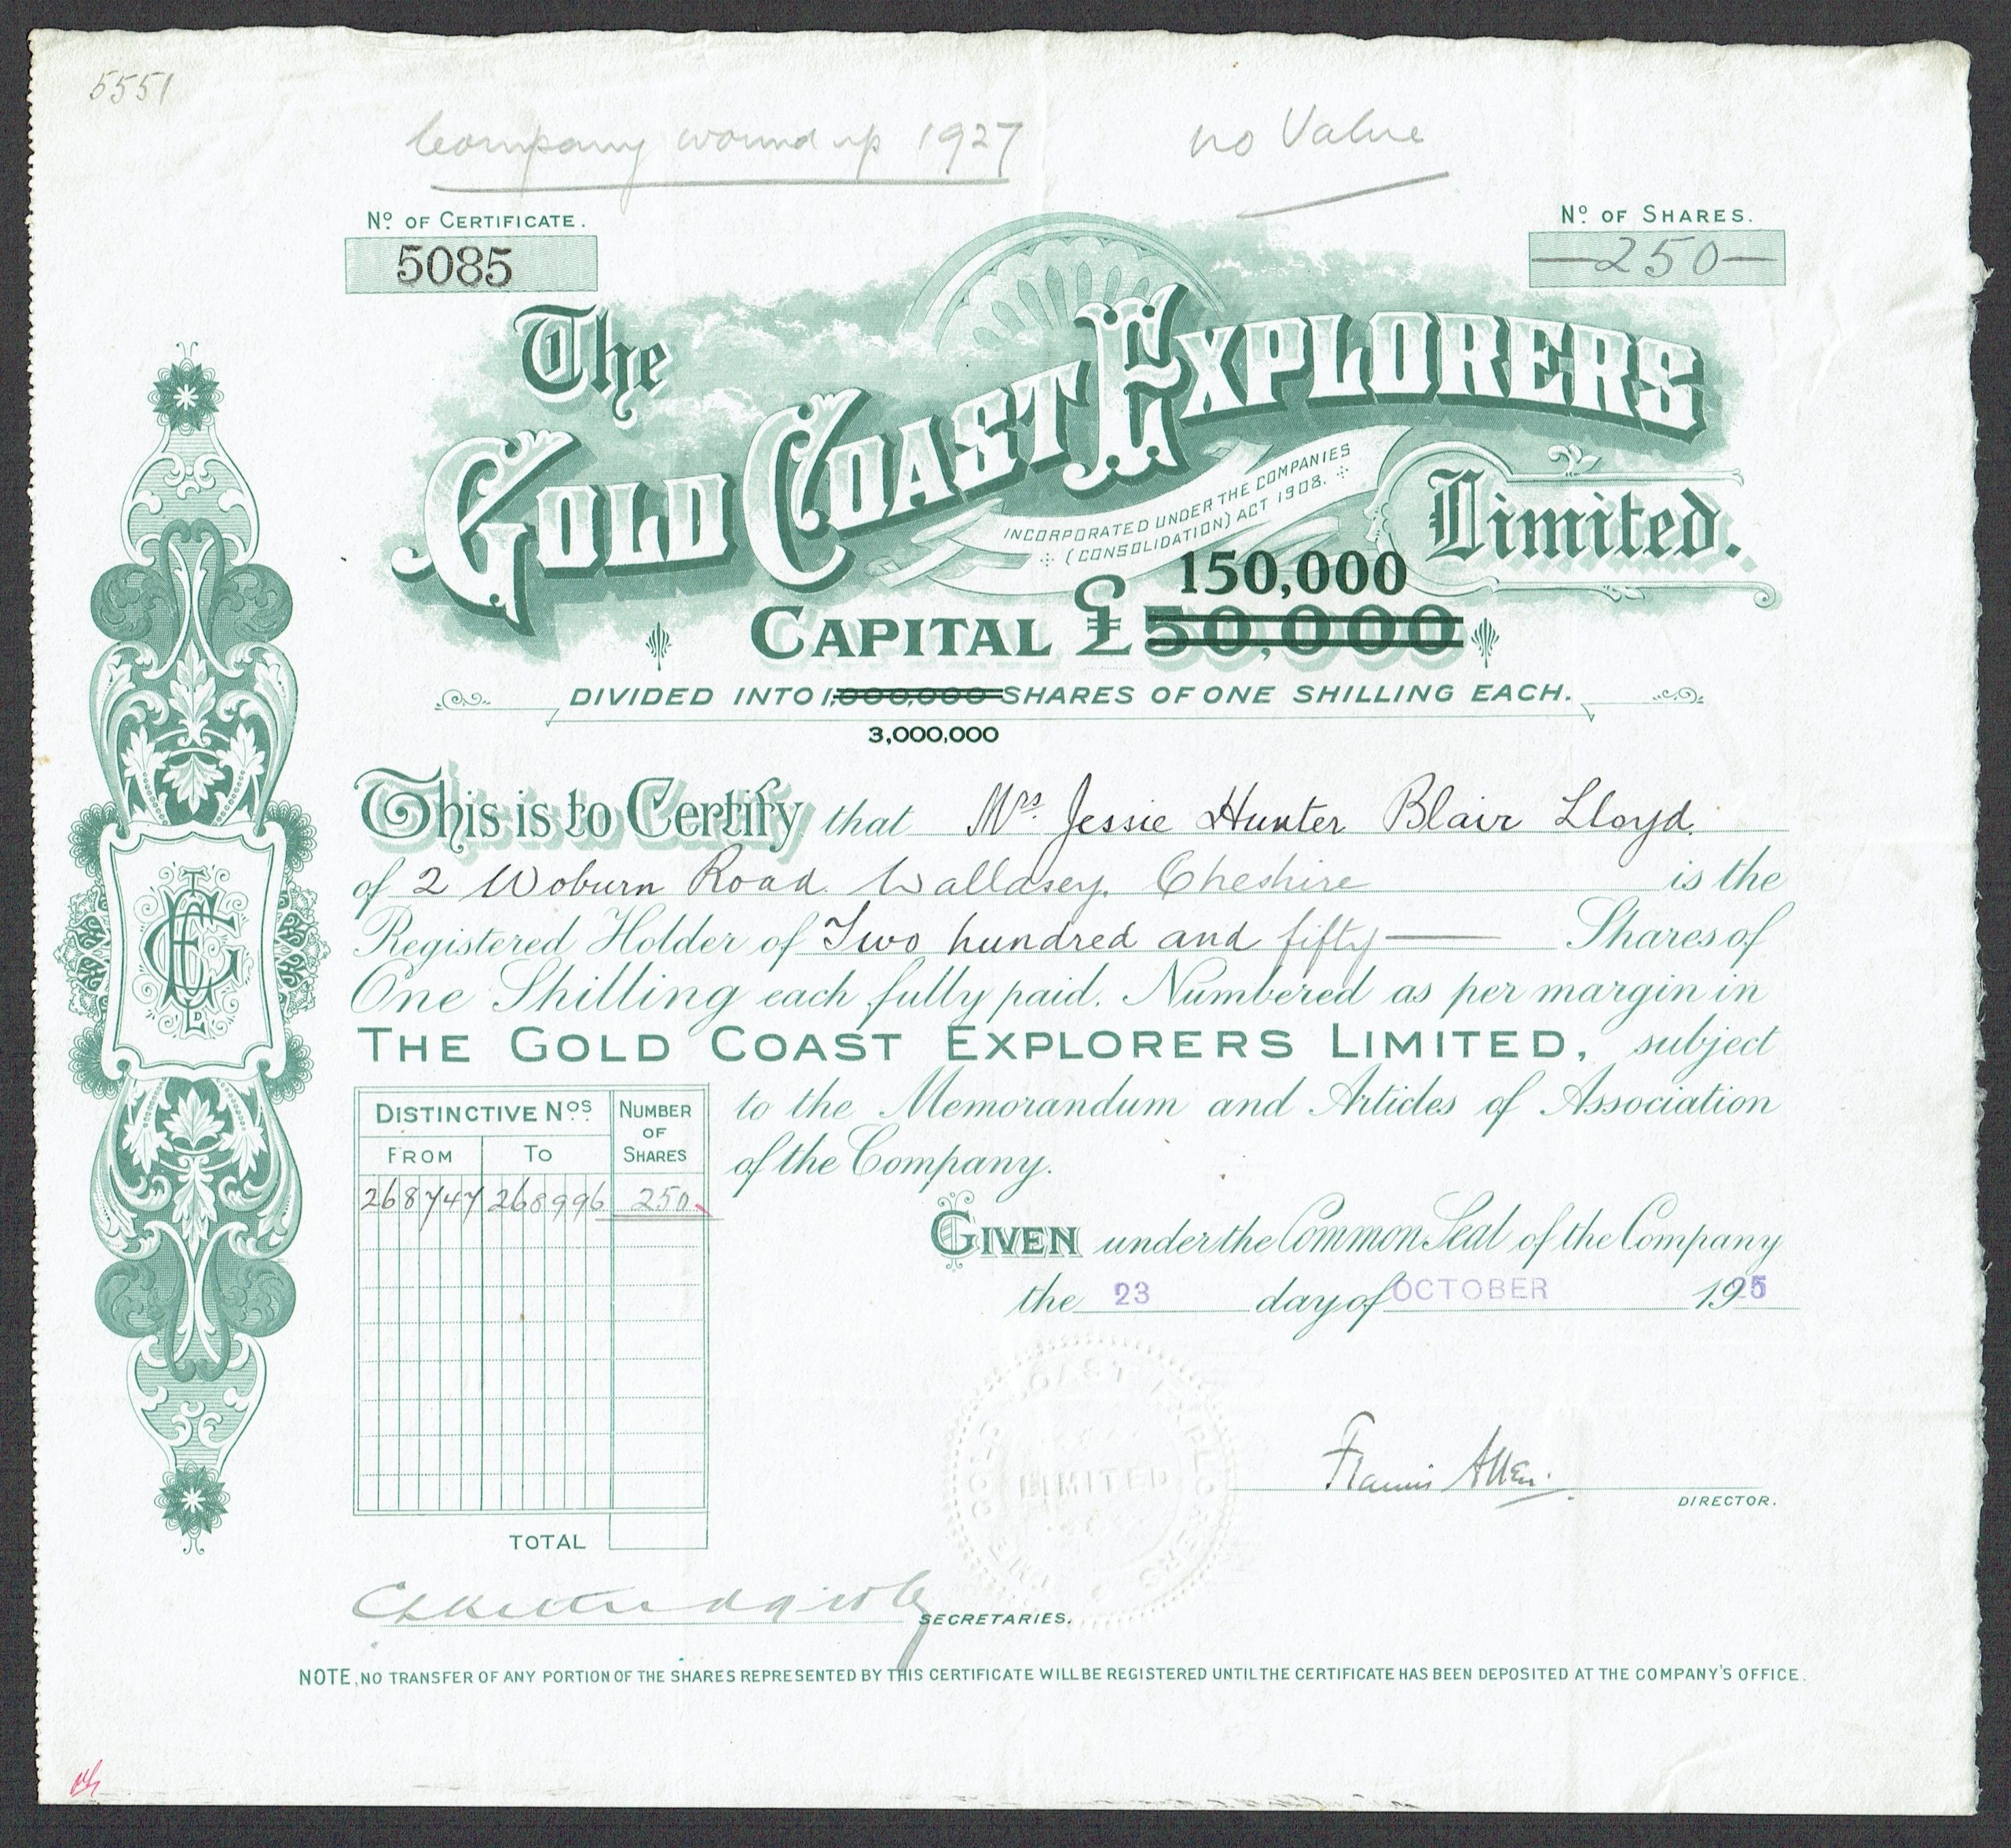 5551
Company wound up 1927 no Value
Nº OF CERTIFICATE. Nº OF SHARES.
5085 —250—
The
GOLD COAST EXPLORERS
INCORPORATED UNDER THE COMPANIES
(CONSOLIDATION) ACT 1908.
Limited.
150,000
CAPITAL £50,000
DIVIDED INTO 1,000,000 SHARES OF ONE SHILLING EACH.
3,000,000
This is to Certify that Mrs. Jessie Hunter Blair Lloyd.
of 2 Woburn Road. Wallasey. Cheshire is the
Registered Holder of Two hundred and fifty — Shares of
One Shilling each fully paid. Numbered as per margin in
THE GOLD COAST EXPLORERS LIMITED, subject
to the Memorandum and Articles of Association
of the Company.
DISTINCTIVE NOS NUMBER OF SHARES
FROM TO
268747 268996 250
GIVEN under the Common Seal of the Company
the 23 day of OCTOBER 1925
THE GOLD COAST EXPLORERS
LIMITED
Francis Allen.
DIRECTOR.
TOTAL
SECRETARIES.
NOTE, NO TRANSFER OF ANY PORTION OF THE SHARES REPRESENTED BY THIS CERTIFICATE WILL BE REGISTERED UNTIL THE CERTIFICATE HAS BEEN DEPOSITED AT THE COMPANY'S OFFICE.